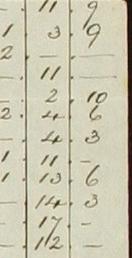 - . 11 . 9
1 . 3 . 9
2 . — . —
- . 11 . —
- . 2 . 10
2 . 4 . 6
- . 4 . 3
1 . 11 . -
1 . 13 . 6
- . 14 . 3
- . 17 . -
- . 12 . —